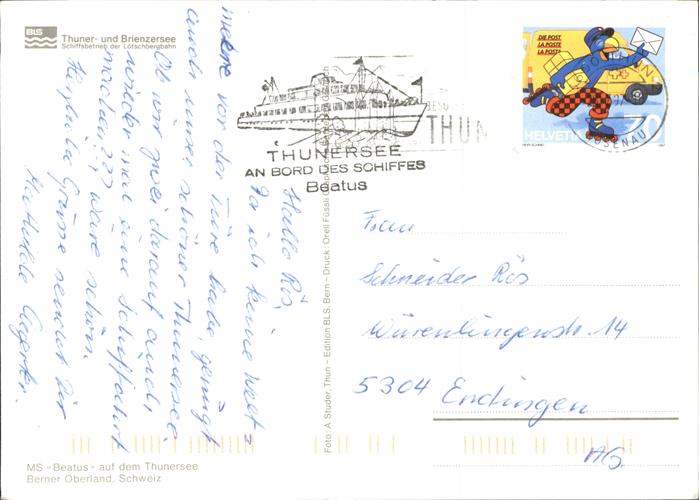 BLS
Thuner- und Brienzersee
Schiffsbetrieb der Lötschbergbahn
Hallo Rös,
Da ich keine Welt-
meere vor der Türe habe, genügt
auch unser schöner Thunersee.
Ob wir zwei darauf auch
wieder mal eine Schifffahrt
machen??? wäre schön.
Herzliche Grüsse sendet Dir
Mathilde
THUNERSEE
AN BORD DES SCHIFFES
Beatus
THUN
DIE POST
LA POSTE
LA POSTA
HELVETIA 70
1997
Frau
Schneider Rös
Würenlingerstr. 14
5304 Endingen
AG.
Foto: A. Studer, Thun - Edition BLS, Bern - Druck: Orell Füssli
MS «Beatus» auf dem Thunersee
Berner Oberland, Schweiz